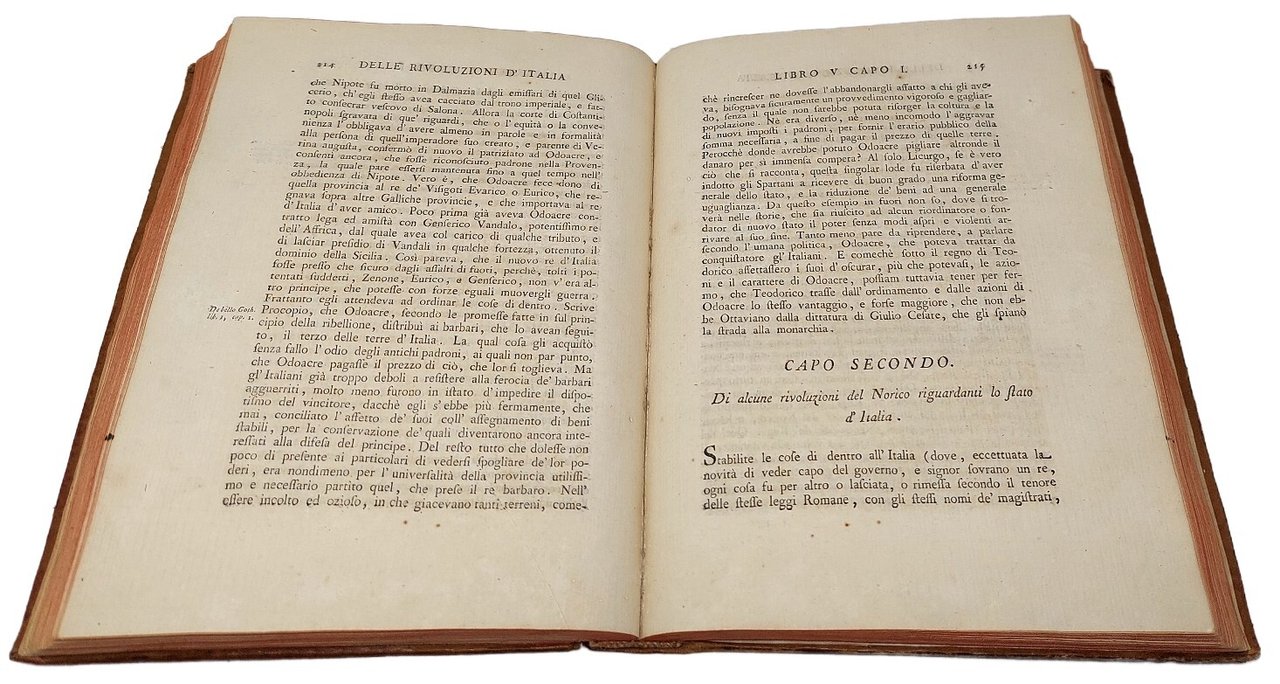 214 DELLE RIVOLUZIONI D'ITALIA
che Nipote fu morto in Dalmazia dagli emissari di quel Gli-
cerio, ch'egli ſteſſo avea cacciato dal trono imperiale, e fat-
to conſecrar veſcovo di Salona. Allora la corte di Coſtanti-
nopoli ſgravata di que' riguardi, che o l'equità o la conve-
nienza l'obbligava d'avere almeno in parole e in formalità
alla perſona di quell'imperadore ſuo creato, e parente di Ve-
rina auguſta, confermò di nuovo il patriziato ad Odoacre, e
conſentì ancora, che foſſe riconoſciuto padrone nella Proven-
za, la quale pare eſſerſi mantenuta fino a quel tempo nell'
obbedienza di Nipote. Vero è, che Odoacre fece dono di
quella provincia al re de' Viſigoti Evarico o Eurico, che re-
gnava ſopra altre Galliche provincie, e che importava al re
d'Italia d'aver amico. Poco prima già aveva Odoacre con-
tratto lega ed amiſtà con Genſerico Vandalo, potentiſſimo re
dell'Affrica, dal quale avea col carico di qualche tributo, e
di laſciar preſidio di Vandali in qualche fortezza, ottenuto il
dominio della Sicilia. Così pareva, che il nuovo re d'Italia
foſſe preſſo che ſicuro dagli aſſalti di fuori, perchè, tolti i po-
tentati ſuddetti, Zenone, Eurico, e Genſerico, non v'era al-
tro principe, che poteſſe con forze eguali muovergli guerra.
Frattanto egli attendeva ad ordinar le coſe di dentro. Scrive
De bello Goth.
lib. 1, cap. 1.
Procopio, che Odoacre, ſecondo le promeſſe fatte in ſul prin-
cipio della ribellione, diſtribuì ai barbari, che lo avean ſegui-
to, il terzo delle terre d'Italia. La qual coſa gli acquiſtò
ſenza fallo l'odio degli antichi padroni, ai quali non par punto,
che Odoacre pagaſſe il prezzo di ciò, che lor ſi toglieva. Ma
gl'Italiani già troppo deboli a reſiſtere alla ferocia de' barbari
agguerriti, molto meno furono in iſtato d'impedire il diſpo-
tiſmo del vincitore, dacchè egli s'ebbe più fermamente, che
mai, conciliato l'affetto de' ſuoi coll' aſſegnamento di beni
ſtabili, per la conſervazione de' quali diventarono ancora inte-
reſſati alla difeſa del principe. Del reſto tutto che doleſſe non
poco di preſente ai particolari di vederſi ſpogliare de' lor po-
deri, era nondimeno per l'univerſalità della provincia utiliſſi-
mo e neceſſario partito quel, che preſe il re barbaro. Nell'
eſſere incolto ed ozioſo, in che giacevano tanti terreni, come-
LIBRO V CAPO I. 215
chè rincreſcer ne doveſſe l'abbandonargli affatto a chi gli ave-
va, biſognava ſicuramente un provvedimento vigoroſo e gagliar-
do, ſenza il quale non ſarebbe potuta riſorger la coltura e la
popolazione. Nè era diverſo, nè meno incomodo l'aggravar
di nuovi impoſti i padroni, per fornir l'erario pubblico della
ſomma neceſſaria, a fine di pagar il prezzo di quelle terre.
Perocchè donde avrebbe potuto Odoacre pigliare altronde il
danaro per sì immenſa compera? Al ſolo Licurgo, ſe è vero
ciò che ſi racconta, queſta ſingolar lode fu riſerbata d'aver
indotto gli Spartani a ricevere di buon grado una riforma ge-
nerale dello ſtato, e la riduzione de' beni ad una generale
uguaglianza. Da queſto eſempio in fuori non ſo, dove ſi tro-
verà nelle ſtorie, che ſia riuſcito ad alcun riordinatore o fon-
dator di nuovo ſtato il poter ſenza modi aſpri e violenti ar-
rivare al ſuo fine. Tanto meno par da riprendere, a parlare
ſecondo l'umana politica, Odoacre, che poteva trattar da
conquiſtatore gl'Italiani. E comechè ſotto il regno di Teo-
dorico affettaſſero i ſuoi d'oſcurar, più che potevaſi, le azio-
ni e il carattere di Odoacre, poſſiam tuttavia tener per fer-
mo, che Teodorico traſſe dall'ordinamento e dalle azioni di
Odoacre lo ſteſſo vantaggio, e forſe maggiore, che non eb-
be Ottaviano dalla dittatura di Giulio Ceſare, che gli ſpianò
la ſtrada alla monarchia.
CAPO SECONDO.
Di alcune rivoluzioni del Norico riguardanti lo ſtato
d'Italia.
Stabilite le coſe di dentro all'Italia (dove, eccettuata la
novità di veder capo del governo, e signor ſovrano un re,
ogni coſa fu per altro o laſciata, o rimeſſa ſecondo il tenore
delle ſteſſe leggi Romane, con gli ſteſſi nomi de' magiſtrati,